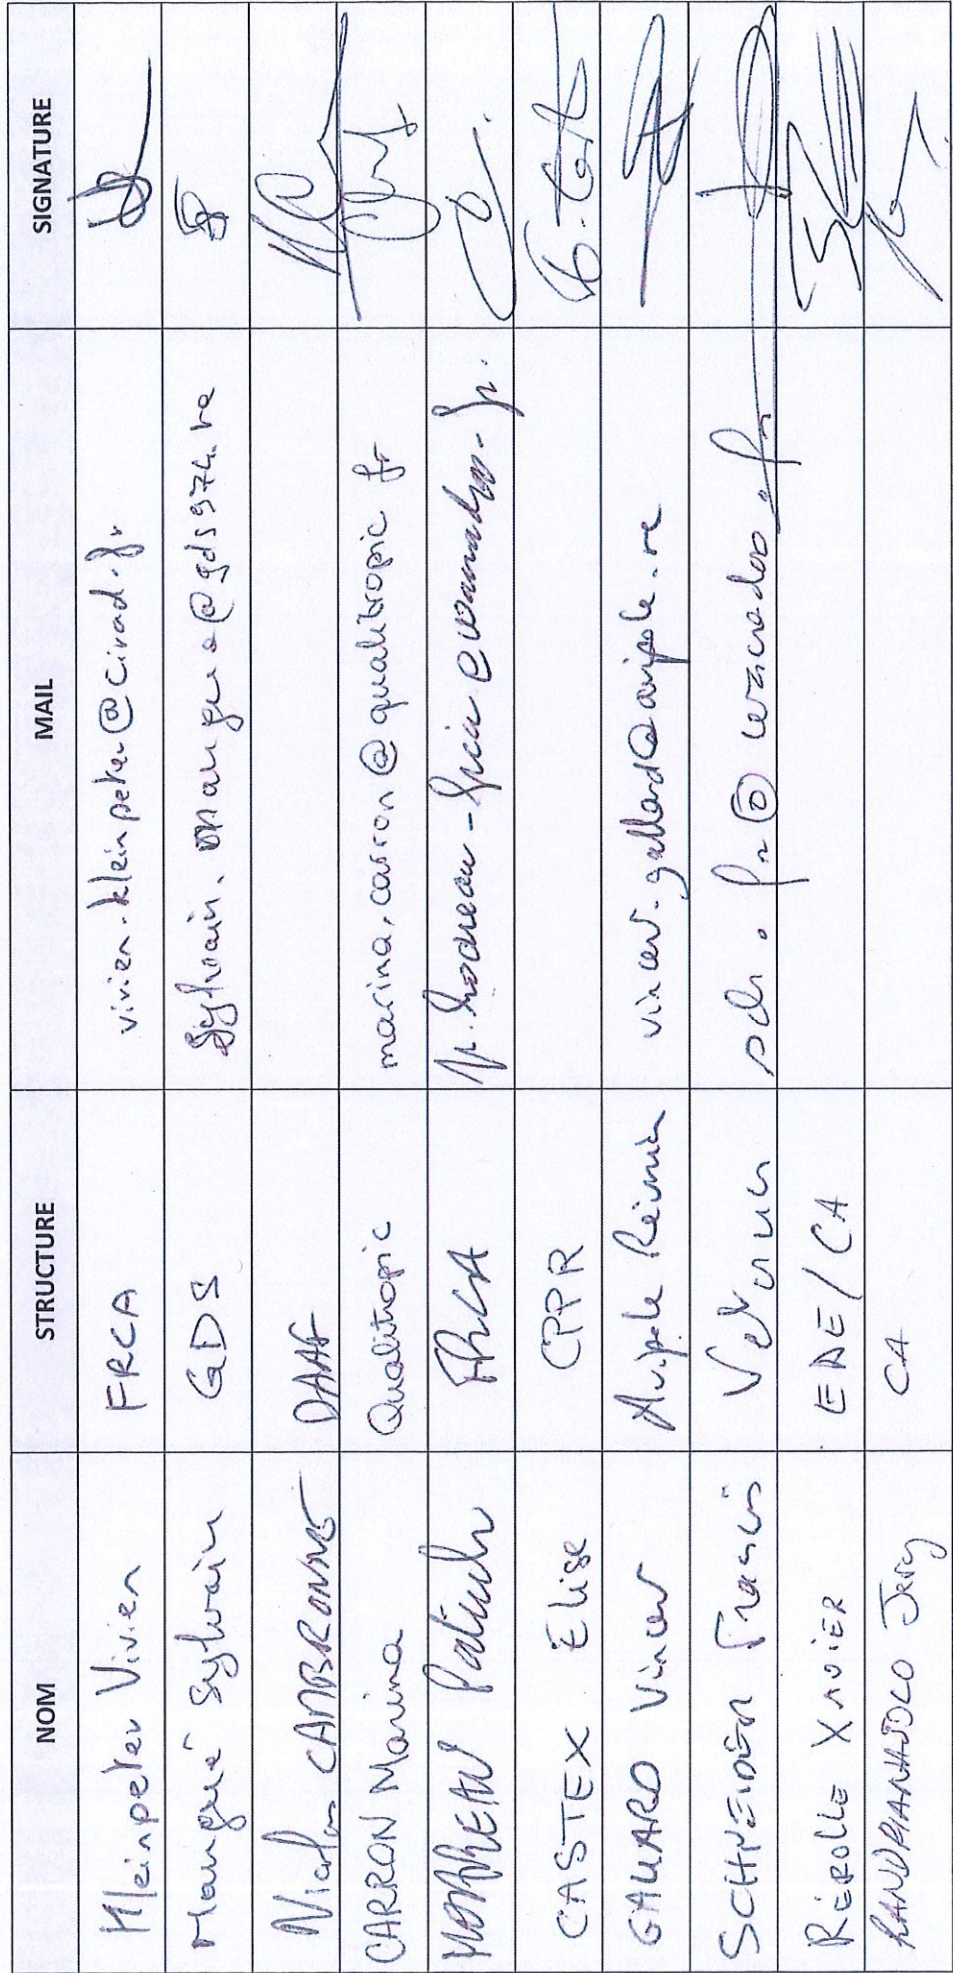 NOM STRUCTURE MAIL SIGNATURE
Kleinpeter Vivien FRCA vivien.kleinpeter@cirad.fr
Mangué Sylvain GDS Sylvain.mangue@gds974.re
CAMBRONNE DAAF
CARRON Marina Qualitropic marina.carron@qualitropic fr
MOREAU FRCA
CASTEX Élise CPPR
GALLARD Vincent Avipole Réunion vincent.gallard@avipole.re
SCHNEIDER Francis
RÉROLLE XAVIER EDE/CA
RANDRIANANJOLO Jerry CA